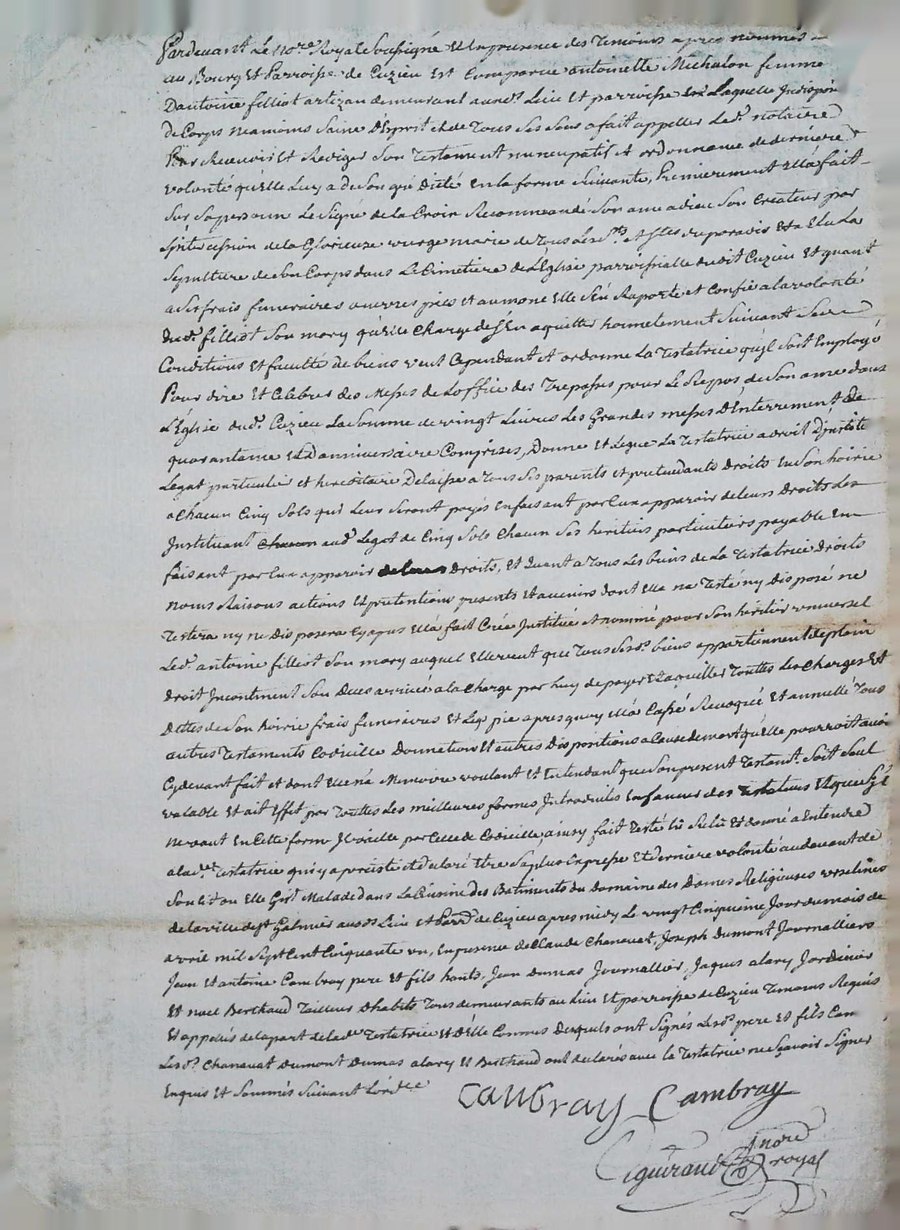 Pardevant Le no.re Royal Soussigné Et En presence des Temoins apres nommés
au Bourg Et Parroisse de Cuzieu Est Comparue antoinette Michalon femme
Dantoine filliot artizan demeurant aux d. Lieu Et parroisse Laquelle Indisposée
de Corps neamoins Saine D'Esprit de Tous Ses Sens a fait appeller Led. notaire
Pour Recevoir Et Rediger Son Testament nuncupatif Et ordonnance de derniere
volonté qu'elle Luy a de Son gré dicté En la forme Suivante, Premierement Ella fait
Sur Sa personne Le Signe de la Croix Recommandé Son ame a dieu Son Createur par
Lintercession de la Glorieuze vierge marie de Tous Les Sts. Et Stes. du paradis Et a Elu La
Sepulture de Son Corps dans Le Cimetiere de L'Eglise parroissialle dudit Cuzieu Et quant
a Ses frais funeraires œuvres pies Et aumone Elle S'En Raporte et Confie a la volonté
dud. filliot Son mary qu'elle Charge de S'En aquitter honnetement Suivant Ses
Conditions Et faculté de biens veut Cependant Et ordonne La Testatrice qu'jl Soit Employé
Pour dire Et Celebrer des Messes de Loffice des Trepassés pour Le Repos de Son ame dans
L'Eglise dud. Cuzieu La Somme de vingt Livres Les Grandes messes D'Enterrement de
quarantaine Et D'anniversaire Comprises, Donne Et Legue La Testatrice a droit D'jnstitution
Legat particulier et hereditaire Delaisse a Tous Ses parents et pretendants droits En Son hoirie
a Chacun Cinq Sols qui Leur Seront payés En faisant par Eux apparoir de leurs Droits Les
Instituant aud. Legat de Cinq Sols Chacun Ses heritiers particuliers payable En
faisant par Eux apparoir Droits, Et Quant a Tous Les biens de La Testatrice Droits
noms Raisons actions Et pretentions presents Et avenirs dont Ella na Testé ny disposé ne
Testera ny ne Disposera Cy apres Ella fait Créé Institué Et nommé pour Son heritier universel
Led. antoine filliot Son mary auquel Elle veut que Tous Sesd. biens appartiennent de plain
droit Incontinent Son Deces arrivé a la Charge par Luy de payer Et aquitter Toutes Les Charges Et
Dettes de Son hoirie frais funeraires Et Legs pie apres quoy Ella Cassé Revoqué Et annullé Tous
autres Testaments Codicille Donnation Et autres Dispositions a Cause de mort qu'elle pourroit avoir
Cy devant fait et dont Elle n'a Memoire voulant et Entendant que Son present Testamt. Soit Seul
valable Et ait Effet par Toutes Les meilleures formes Introduites En faveur des Testateurs Et que S'jl
ne vaut En Cette forme Jl vaille par Celle de Codicille, ainsy fait Testé Lû Relû Et donné a Entendre
a lad. Testatrice qui y a persisté Et declaré Etre Sa plus Expresse Et derniere volonté au devant de
Son Lit ou Elle Git Malade dans La Cuisine des Batiments du Domaine des Dames Religieuses urselines
de la ville de St Galmier auxd. Lieu et Parr. de Cuzieu apres midy Le vingt Cinquieme Jour du mois de
avril mil Sept Cent Cinquante un, En presence de Claude Chanavat, Joseph Dumont Journalliers
Jean et antoine Cambray pere Et fils, Jean dumas Journallier, Jaques alary Jardinier
Et noel Berthaud Tailleur d'habits Tous demeurants au Lieu Et parroisse de Cuzieu Temoins Requis
Et appellés de la part de lad. Testatrice et d'Elle Connus Desquels ont Signés Lesd. pere Et fils Cambray
Lesd. Chanavat Dumont Dumas alary Et Berthaud ont declarés avec la Testatrice ne Sçavoir Signer
Enquis Et Sommés Suivant L'ord.ce
Cambray Cambray
Eguiraud
nore
royal